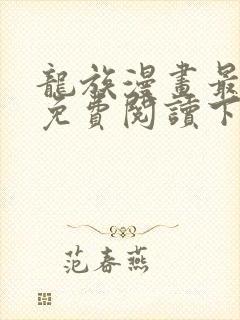 龍族漫畫最
免費閱讀下
范春燕